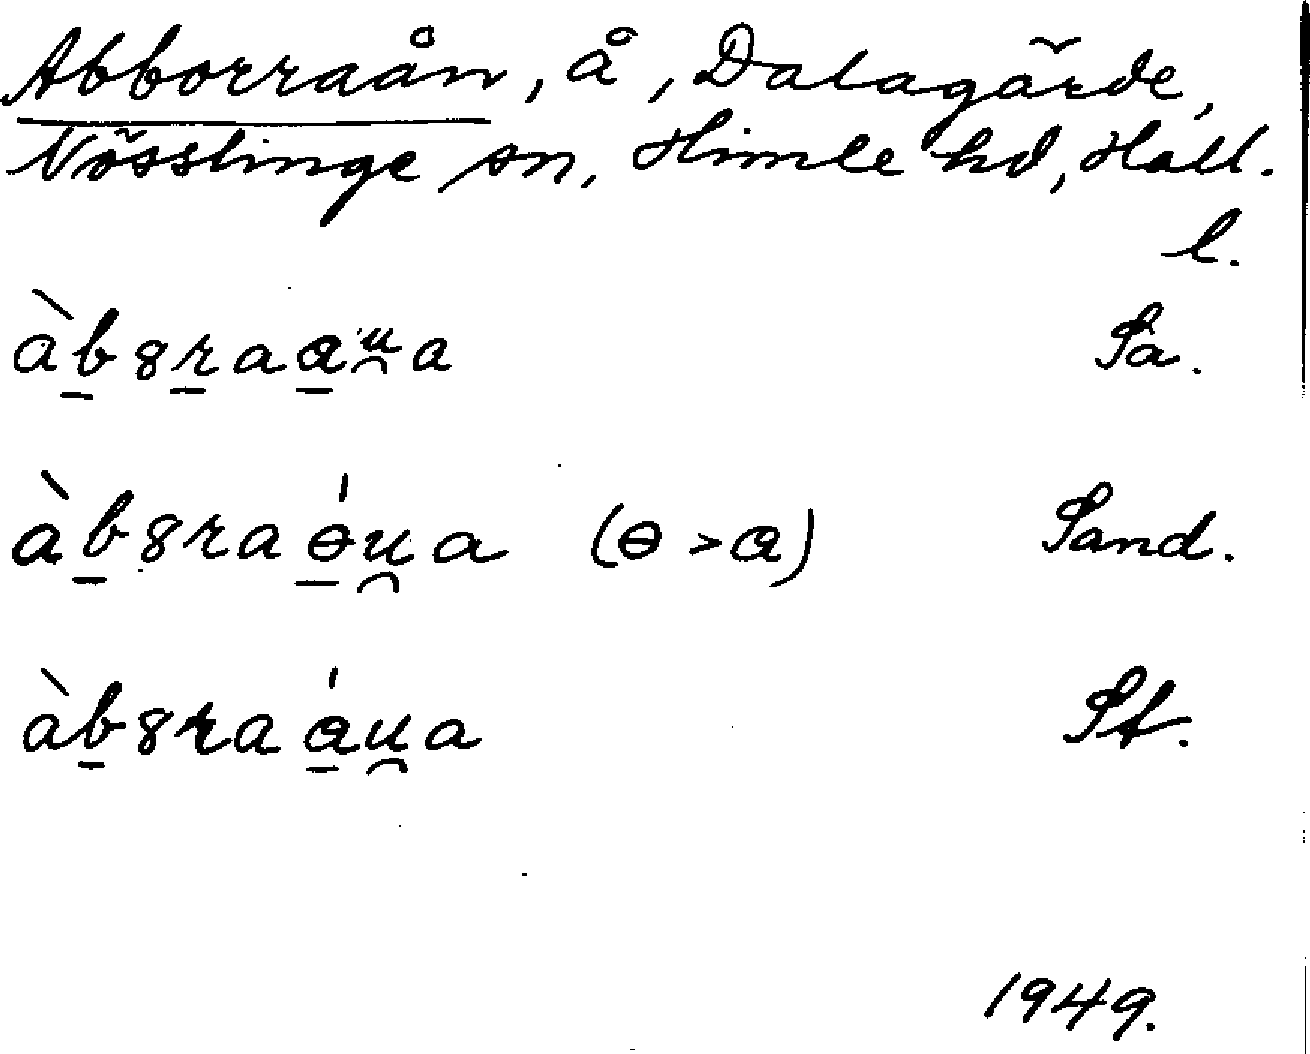 Abborraån, å, Dalagärde,
Nösslinge sn, Himle hd, Hall.
l.
àb8raaͧa Sa.
àb8raɵ́u̯a (ɵ > a) Sand.
àb8raáu̯a St.
1949.